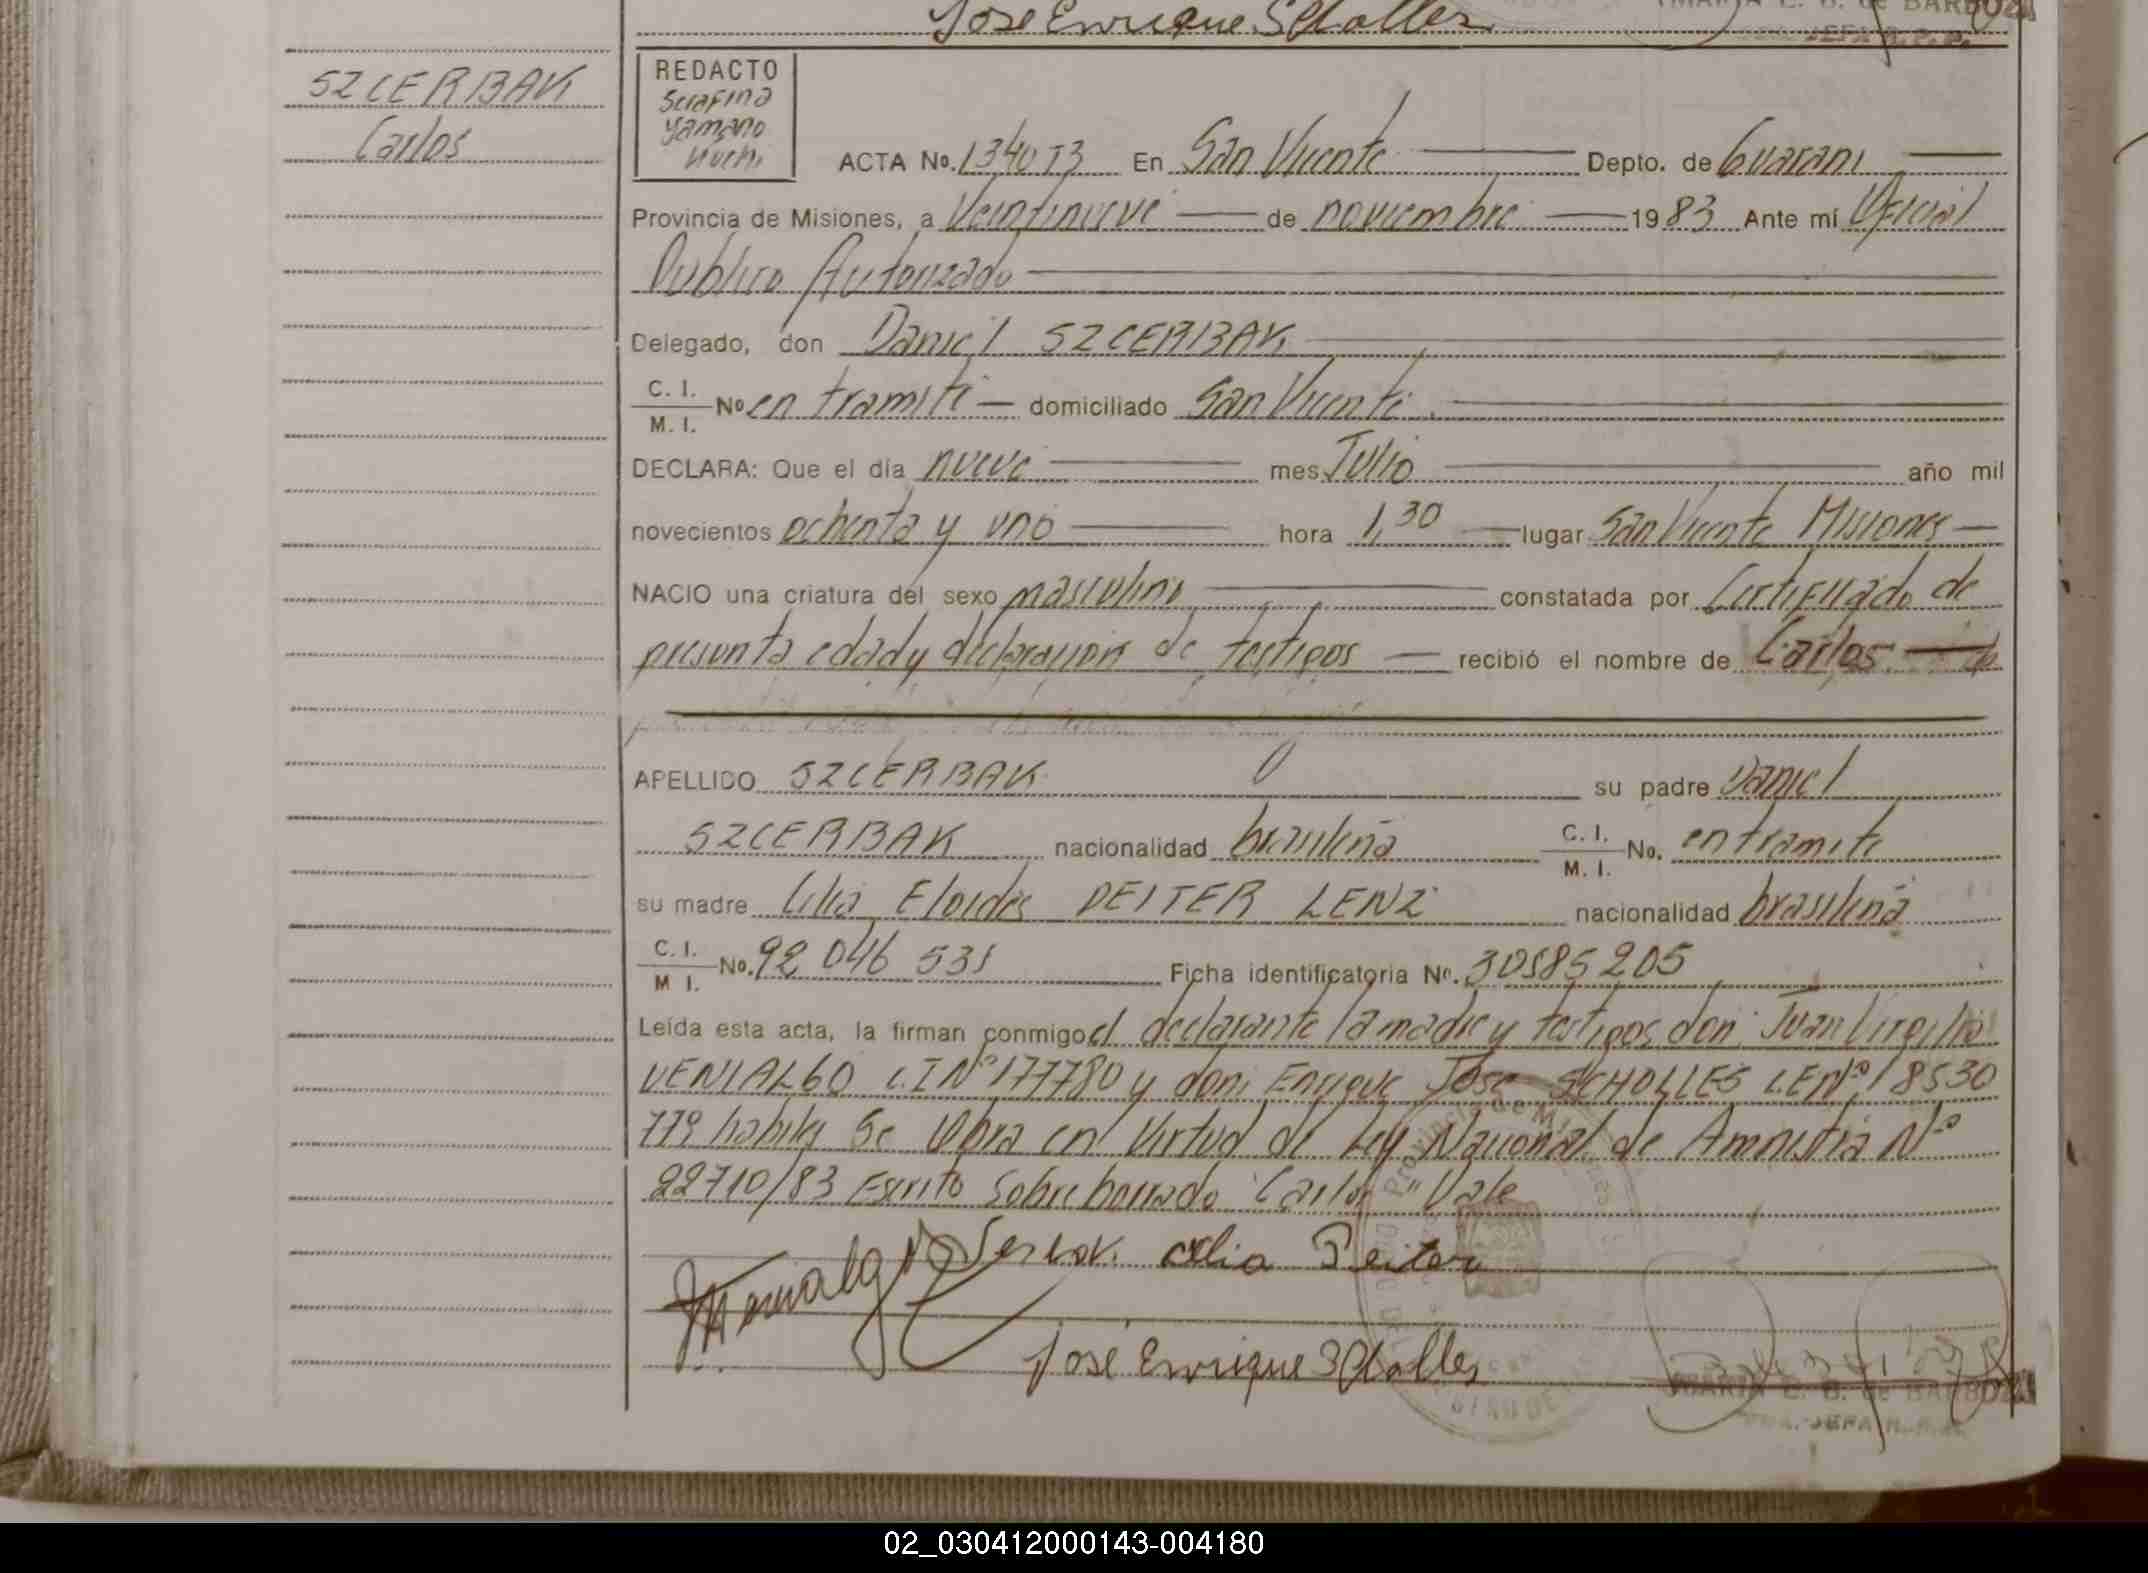 José Enrique Scholles
SZCERBAK
Carlos
REDACTO
Serafina
Yamano
ACTA No. 1340 T3 En San Vicente Depto. de Guarani
Provincia de Misiones, a Veintinueve de noviembre 1983 Ante mí Oficial
Publico Autorizado
Delegado, don Daniel SZCERBAK
C. I.
M. I. No en tramite domiciliado San Vicente
DECLARA: Que el día nueve mes Julio año mil
novecientos ochenta y uno hora 1,30 lugar San Vicente Misiones
NACIO una criatura del sexo masculino constatada por Certificado de
presunta edad y declaracion de testigos recibió el nombre de Carlos
APELLIDO SZCERBAK su padre Daniel
SZCERBAK nacionalidad brasileña C. I.
M. I. No. en tramite
su madre Lilia Eloides DEITER LENZ nacionalidad brasileña
C. I.
M I. No. 92 046 531 Ficha identificatoria No. 30585205
Leída esta acta, la firman conmigo el declarante la madre y testigos don: Juan Virgilio
VENIALGO C.I Nº 177780 y don: Enrique José SCHOLLES L E Nº 18530
779 habiles Se Obra en Virtud de Ley Nacional de Amnistia Nº
22710/83 Escrito Sobre borrado "Carlos" Vale
José Enrique Scholles
MARIA E. B. de BARBOZA
JEFA R. P.
02_030412000143-004180